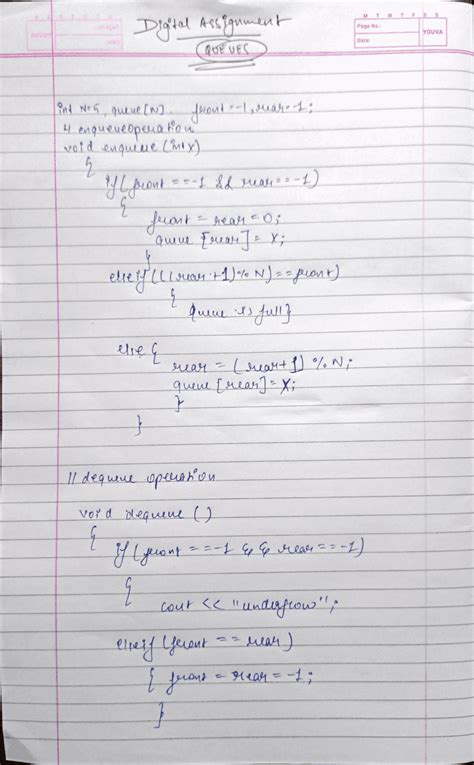 Digital Assignment
QUEUES
M T W T F S S
Page No.:
Date:
YOUVA
int N=5, queue[N] front=-1, rear=-1;
enqueue operation
void enqueue (int x)
{
if(front==-1 && rear==-1)
{
front = rear = 0;
queue [rear] = X;
}
else if(((rear+1)%N)==front)
{
Queue is full}
else {
rear = (rear+1) %N;
queue [rear] = X;
}
}
// dequeue operation
void dequeue ()
{
if(front==-1 && rear==-1)
{
cout << "underflow";
else if (front == rear)
{ front = rear = -1;
}